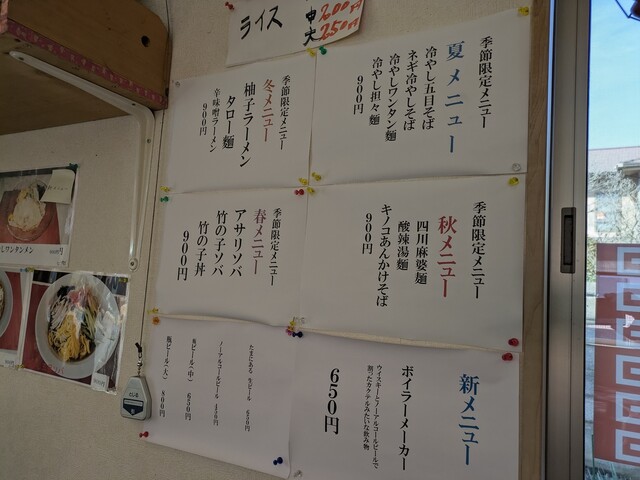 ライス 中 200円
大 250円
季節限定メニュー
夏メニュー
冷やし五目そば
ネギ冷やしそば
冷やしワンタン麺
冷やし担々麺
900円
季節限定メニュー
冬メニュー
柚子ラーメン
タロー麺
辛味噌ラーメン
900円
季節限定メニュー
秋メニュー
四川麻婆麺
酸辣湯麺
キノコあんかけそば
900円
季節限定メニュー
春メニュー
アサリソバ
竹の子ソバ
竹の子丼
900円
新メニュー
ボイラーメーカー
ウイスキーとノーアルコールビールで
割ったカクテルみたいな飲み物
650円
たまにある 生ビール 650円
ノーアルコールビール 450円
瓶ビール(中) 650円
瓶ビール(大) 800円
ワンタンメン